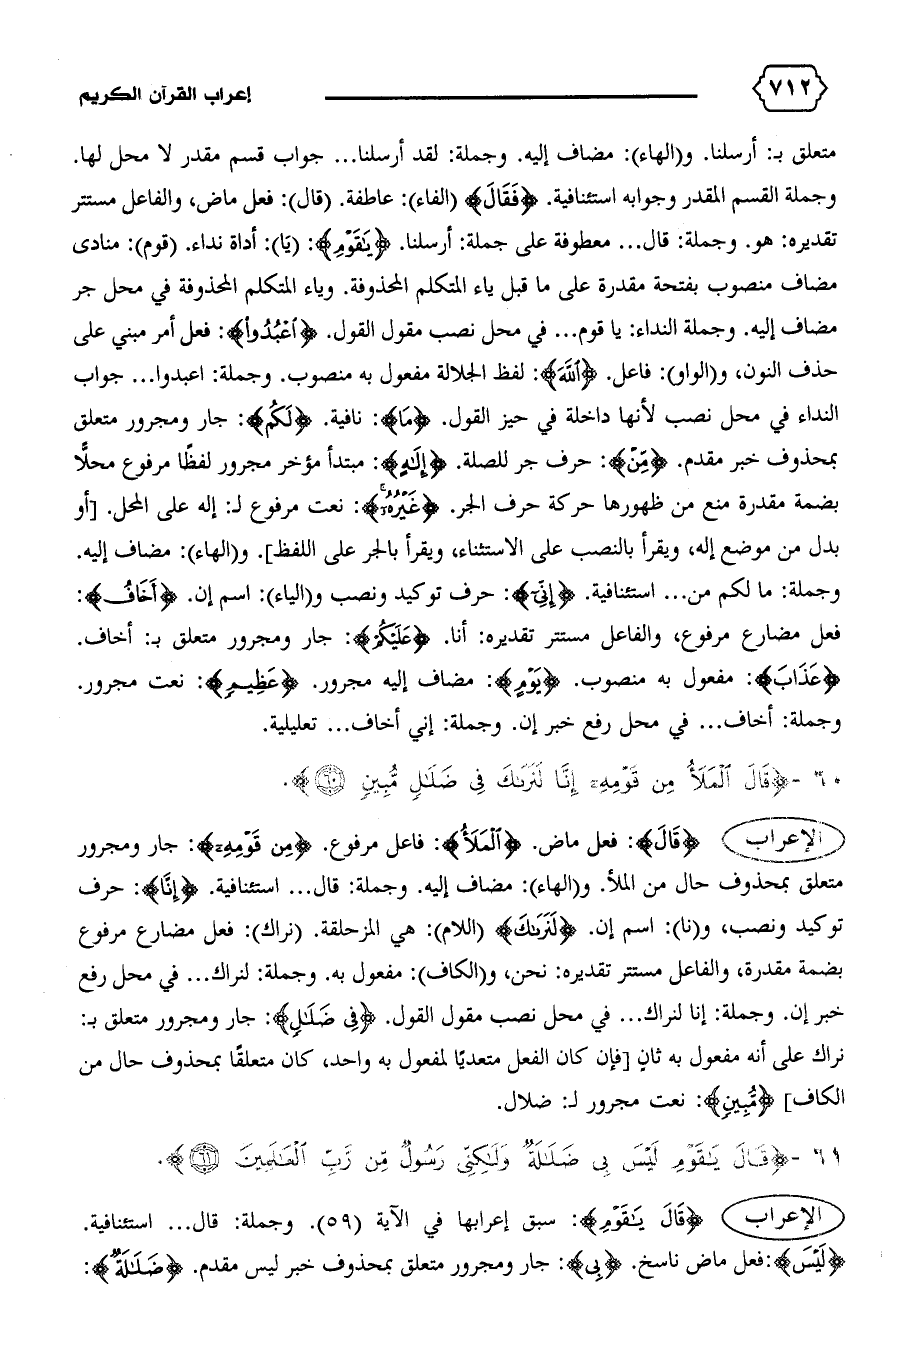 ٧١٢ إعراب القرآن الكريم
متعلق بـ: أرسلنا. و(الهاء): مضاف إليه. وجملة: لقد أرسلنا... جواب قسم مقدر لا محل لها.
وجملة القسم المقدر وجوابه استئنافية. ﴿فَقَالَ﴾ (الفاء): عاطفة. (قال): فعل ماض، والفاعل مستتر
تقديره: هو. وجملة: قال... معطوفة على جملة: أرسلنا. ﴿يَٰقَوْمِ﴾: (يَا): أداة نداء. (قوم): منادى
مضاف منصوب بفتحة مقدرة على ما قبل ياء المتكلم المحذوفة. وياء المتكلم المحذوفة في محل جر
مضاف إليه. وجملة النداء: يا قوم... في محل نصب مقول القول. ﴿ٱعْبُدُوا۟﴾: فعل أمر مبني على
حذف النون، و(الواو): فاعل. ﴿ٱللَّهَ﴾: لفظ الجلالة مفعول به منصوب. وجملة: اعبدوا... جواب
النداء في محل نصب لأنها داخلة في حيز القول. ﴿مَا﴾: نافية. ﴿لَكُم﴾: جار ومجرور متعلق
بمحذوف خبر مقدم. ﴿مِّنْ﴾: حرف جر للصلة. ﴿إِلَٰهٍ﴾: مبتدأ مؤخر مجرور لفظًا مرفوع محلًّا
بضمة مقدرة منع من ظهورها حركة حرف الجر. ﴿غَيْرُهُۥٓ﴾: نعت مرفوع لـ: إله على المحل. [أو
بدل من موضع إله، ويقرأ بالنصب على الاستثناء، ويقرأ بالجر على اللفظ]. و(الهاء): مضاف إليه.
وجملة: ما لكم من... استئنافية. ﴿إِنِّىٓ﴾: حرف توكيد ونصب و(الياء): اسم إن. ﴿أَخَافُ﴾:
فعل مضارع مرفوع، والفاعل مستتر تقديره: أنا. ﴿عَلَيْكُمْ﴾: جار ومجرور متعلق بـ: أخاف.
﴿عَذَابَ﴾: مفعول به منصوب. ﴿يَوْمٍ﴾: مضاف إليه مجرور. ﴿عَظِيمٍ﴾: نعت مجرور.
وجملة: أخاف... في محل رفع خبر إن. وجملة: إني أخاف... تعليلية.
٦٠ -﴿قَالَ ٱلْمَلَأُ مِن قَوْمِهِۦٓ إِنَّا لَنَرَىٰكَ فِى ضَلَٰلٍ مُّبِينٍ ۝٦٠﴾.
الإعراب ﴿قَالَ﴾: فعل ماض. ﴿ٱلْمَلَأُ﴾: فاعل مرفوع. ﴿مِن قَوْمِهِۦٓ﴾: جار ومجرور
متعلق بمحذوف حال من الملأ. و(الهاء): مضاف إليه. وجملة: قال... استئنافية. ﴿إِنَّا﴾: حرف
توكيد ونصب، و(نا): اسم إن. ﴿لَنَرَىٰكَ﴾ (اللام): هي المزحلقة. (نراك): فعل مضارع مرفوع
بضمة مقدرة، والفاعل مستتر تقديره: نحن، و(الكاف): مفعول به. وجملة: لنراك... في محل رفع
خبر إن. وجملة: إنا لنراك... في محل نصب مقول القول. ﴿فِى ضَلَٰلٍ﴾: جار ومجرور متعلق بـ:
نراك على أنه مفعول به ثانٍ [فإن كان الفعل متعديًا لمفعول به واحد، كان متعلقًا بمحذوف حال من
الكاف] ﴿مُّبِينٍ﴾: نعت مجرور لـ: ضلال.
٦١ -﴿قَالَ يَٰقَوْمِ لَيْسَ بِى ضَلَٰلَةٌ وَلَٰكِنِّى رَسُولٌ مِّن رَّبِّ ٱلْعَٰلَمِينَ ۝٦١﴾.
الإعراب ﴿قَالَ يَٰقَوْمِ﴾: سبق إعرابها في الآية (٥٩). وجملة: قال... استئنافية.
﴿لَيْسَ﴾:فعل ماض ناسخ. ﴿بِى﴾: جار ومجرور متعلق بمحذوف خبر ليس مقدم. ﴿ضَلَٰلَةٌ﴾: